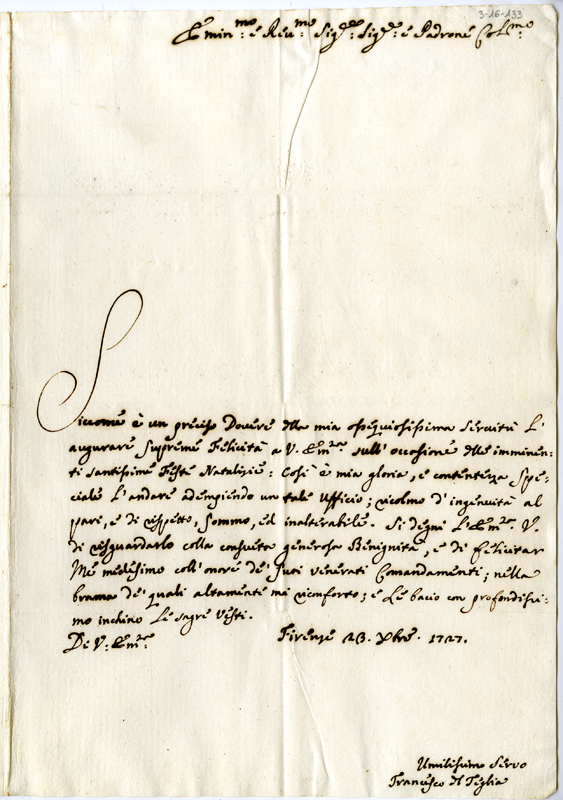 3-16-133
Emin:mo e Reu:mo Sig:re Sig:re e Padrone Col:mo
Siccome è un preciso Dovere della mia ossequiosissima servitù l'
augurare supreme Felicità a V. Em:za sull'occasione delle imminen-
ti santissime Feste Natalizie: Così è mia gloria, e contentezza spe-
ciale l'andare adempiendo un tale Uffizio; ricolmo d'ingenuità al
pari, e di rispetto, sommo, ed inalterabile. Si degni l'Em:za V.
di risguardarlo colla consueta generosa Benignità, e di felicitar
Me medesimo coll'onore de' suoi venerati Comandamenti; nella
brama de' quali altamente mi riconforto; e Le bacio con profondissi-
mo inchino Le sagre Vesti.
Di V: Em:za Firenze 23. Xbre. 1727.
Umilissimo Servo
Francesco del Teglia